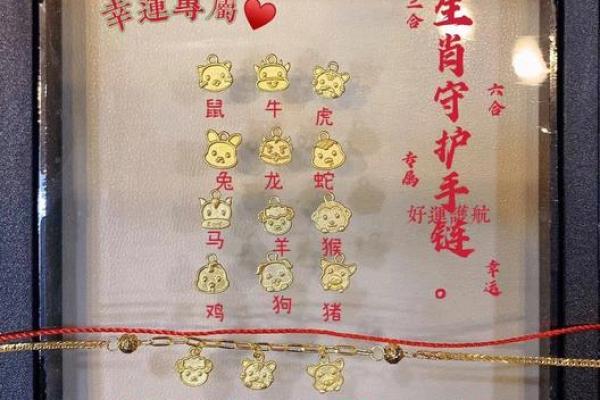 幸運專屬
三合
生肖守护手链。
六合
专属
好運護航
幸运
鼠 牛 虎
兔 龙 蛇
马 羊 猴
鸡 狗 猪